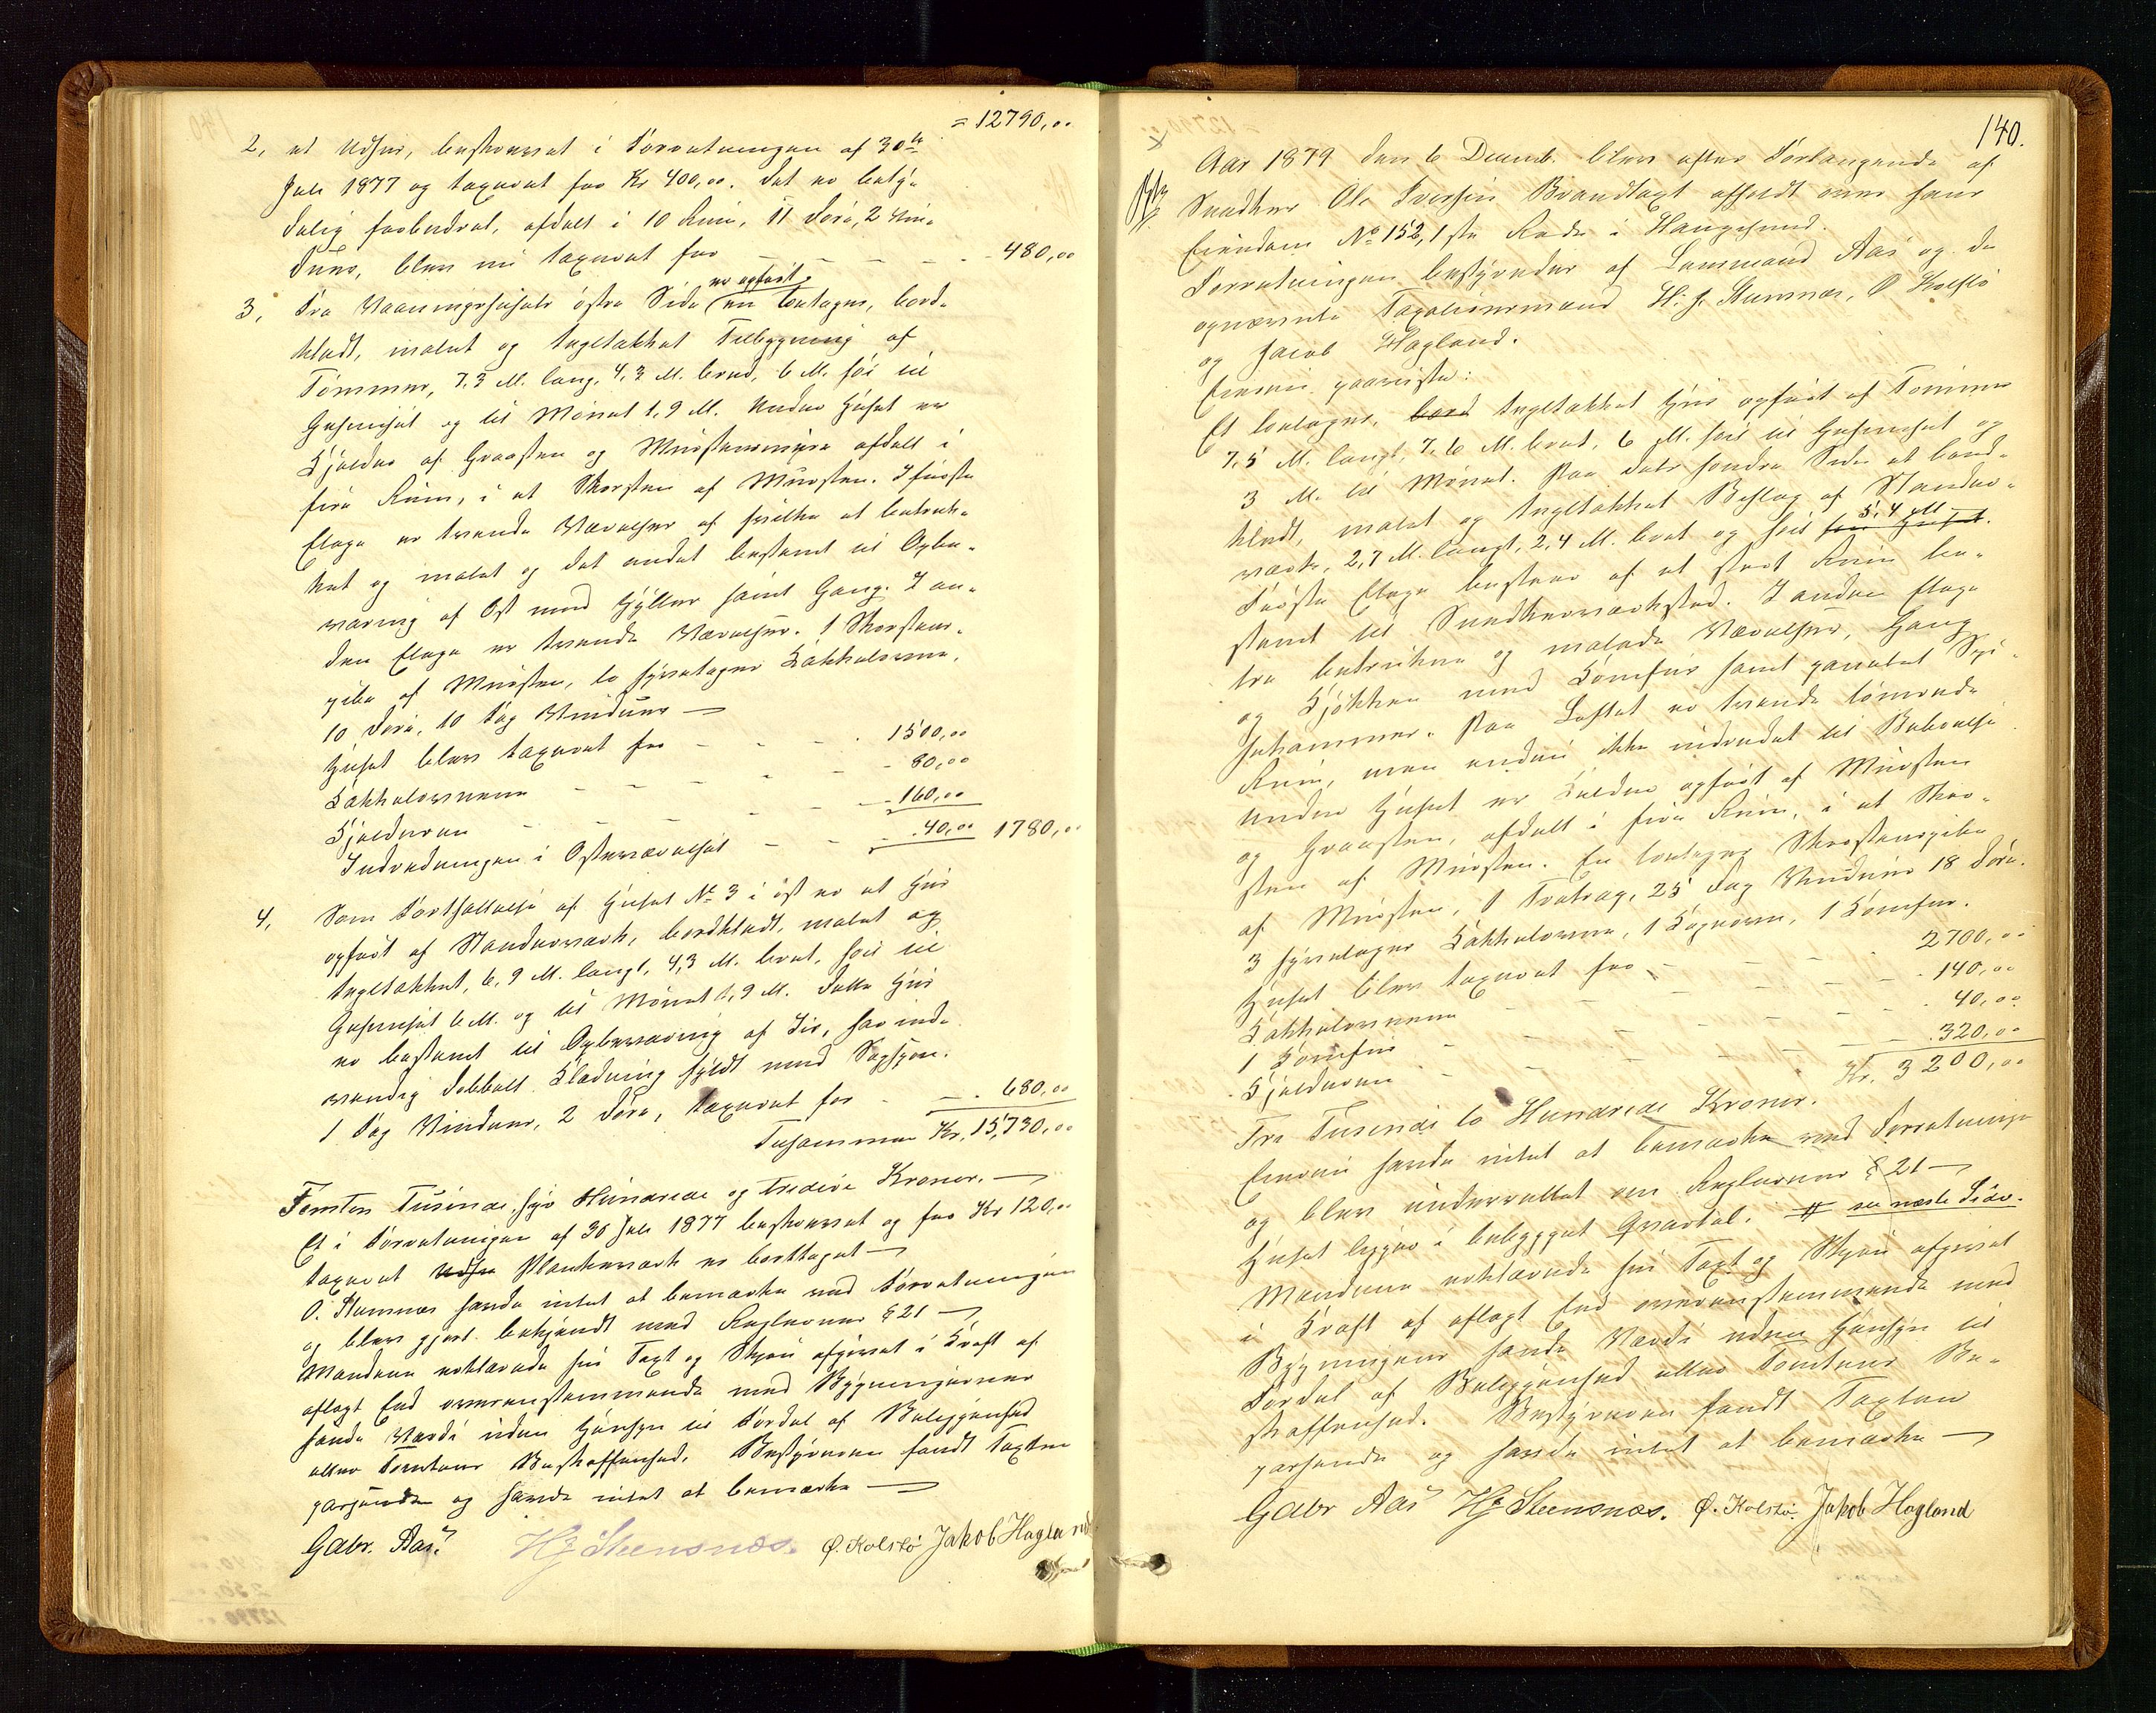 = 12790,00
2, et Udhus, beskrevet i Forretningen af 30te
Juli 1877 og taxeret for Kr 400,00. Det er bety-
delig forbedret, afdelt i 10 Rum, 11 Døre, 2 Vin-
duer, blev nu taxeret for - - - - 480,00
3, Fra Vaaningshusets østre Side er opført en toetages, bord-
klædt, malet og tegltækket Tilbygning af
Tømmer, 7,3 M. lang, 4,3 M. bred, 6 M. høi til
Gesimset og til Mønet 1,9 M. Under Huset er
Kjelder af Graasten og Murstensmure afdelt i
fire Rum, i et Skorsten af Mursten. I første
Etage er tvende Værelser af hvilke et betræk-
ket og malet og det andet bestemt til Opbe-
varing af Ost med Hylder samt Gang. I an-
den Etage er tvende Værelser. 1 Skorstens-
pibe af Mursten, to fyretages Kakkelovne,
10 Døre, 10 Fag Vinduer
Huset blev taxeret for - - - 1500,00
Kakkelovnene - - - - 80,00
Kjelderen - - - - 160,00
Indredningen i Osteværelset - - 40,00 1780,00
4, Som Fortsættelse af Huset No 3 i øst er et Hus
opført af Standerværk, bordklædt, malet og
tegltækket, 6,9 M. langt, 4,3 M. bret, høit til
Gesimset 6 M. og til Mønet 1,9 M. Dette Hus
er bestemt til Opbevaring af Iis, har ind-
vendig dobbelt Klædning fyldt med Sagspon.
1 Fag Vinduer, 2 Døre, taxeret for - - 680,00
Tilsammen Kr. 15,730,00
Femten Tusinde, syv Hundrede og tredive Kroner.
Et i Forretningen af 30 Juli 1877 beskrevet og for Kr 120,00
taxeret Udhu Plankeværk er borttaget
O. Stumnæs havde intet at bemærke ved Forretningen
og blev gjort bekjendt med Reglernes § 21
Mændene erklærede sin Taxt og Skjøn afgivet i Kraft af
aflagt Eed overensstemmende med Bygningernes
sande Værdi uden Hensyn til Fordel af Beliggenhed
eller Tomtens Beskaffenhed. Bestyreren fandt Taxten
passende og havde intet at bemærke
Gabr. Aas. HJ Steensnæs. Ø. Kolstø Jakob Hagland
140.
Aar 1879 den 6 Decemb. blev efter Forlangende af
Snedker Ole Iversen Brandtaxt afholdt over hans
Eiendom No 152, 1ste Rode i Haugesund.
Forretningen bestyredes af Lensmand Aas og de
opnævnte Taxationsmænd H. J. Stumnæs, Ø Kolstø
og Jacob Hagland.
Eieren paaviste:
Et toetages, bord tegltækket Hus opført af Tømmer
7,5 M. langt, 7,6 M. bret, 6 M. høit til Gesimset og
3 M. til Mønet. Paa dets søndre Side et bord-
klædt, malet og tegltækket Beslag af Stander-
værk, 2,7 M. langt, 2,4 M. bret og høit som Huset. 5,4 M
Første Etage bestaar af et stort Rum be-
stemt til Snedkerværksted. I anden Etage
tre betrukne og malede Værelser, Gang
og Kjøkken med Komfur samt panelet Spi-
sekammer. Paa Loftet er tvende tømrede
Rum, men endnu ikke indredet til Beboelse.
Under Huset er Kjelder opført af Mursten
og Graasten, afdelt i fire Rum, i et Skor-
sten af Mursten. En toetages Skorstenspibe
af Mursten, 1 Fortrap, 25 Fag Vinduer 18 Døre.
3 fyretages Kakkelovne, 1 Kogeovn, 1 Komfur.
Huset blev taxeret for - - - 2700,00
Kakkelovnene - - - - 140,00
1 Komfur - - - - 40,00
Kjelderen - - - - 320,00
Kr. 3200,00
Tre Tusinde to Hundrede Kroner.
Eieren havde intet at bemærke ved Forretningen
og blev underrettet om Reglernes § 21
Huset ligger i bebygget Qvartal. # see næste Side.
Mændene erklærede sin Taxt og Skjøn afgivet
i Kraft af aflagt Eed overensstemmende med
Bygningens sande Værdi uden Hensyn til
Fordel af Beliggenhed eller Tomtens Be-
skaffenhed. Bestyreren fandt Taxten
passende og havde intet at bemærke
Gabr Aas HJ Steensnæs. Ø. Kolstø. Jakob Hagland